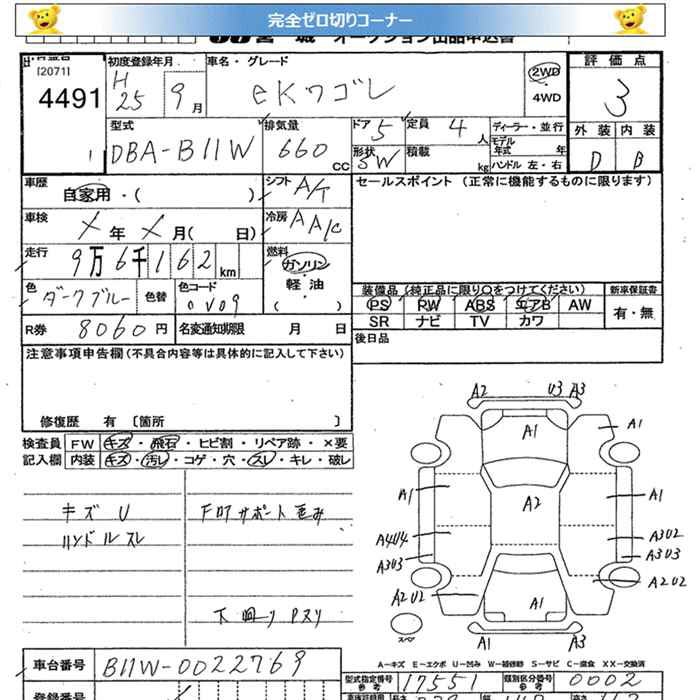 完全ゼロ切りコーナー
宮城 オークション出品申込書
[2071]
4491
1
初度登録年月
H25 9月
車名・グレード
eKワゴン
2WD
4WD
評価点
3
外装 内装
D B
型式
DBA-B11W
排気量
660 CC
ドア 5
形状 SW
定員 4人
積載 kg
ディーラー・並行
モデル年式 年
ハンドル 左・右
車歴
自家用・( )
シフト A/T
車検
X年X月( 日)
冷房 AA/C
走行
9万6千162km
燃料
ガソリン・軽油・
( )
色
ダークブルー
色替
色コード
0V09
R券 8060円
名変通知期限 月 日
セールスポイント (正常に機能するものに限ります)
装備品 (純正品に限り○をつけてください)
PS PW ABS エアB AW
SR ナビ TV カワ
新車保証書
有・無
後日品
注意事項申告欄(不具合内容等は具体的に記入して下さい)
修復歴 有 〔箇所 〕
検査員記入欄
FW キズ・飛石・ヒビ割・リペア跡・×要
内装 キズ・汚レ・コゲ・穴・スレ・キレ・破レ
キズ U
ハンドルスレ
Fロアサポート歪み
下廻り Pスリ
A2 U3 A3
A1 A1
A1 A2 A1
A4U4 A3U2
A3U3 A3U3
A2U2 A2U2
A1
A1 A3
スペア
A-キズ E-エクボ U-凹み W-補修跡 S-サビ C-腐食 XX-交換済
車台番号
B11W-0022769
型式指定番号 参考 17551
類別区分番号 参考 0002
登録番号